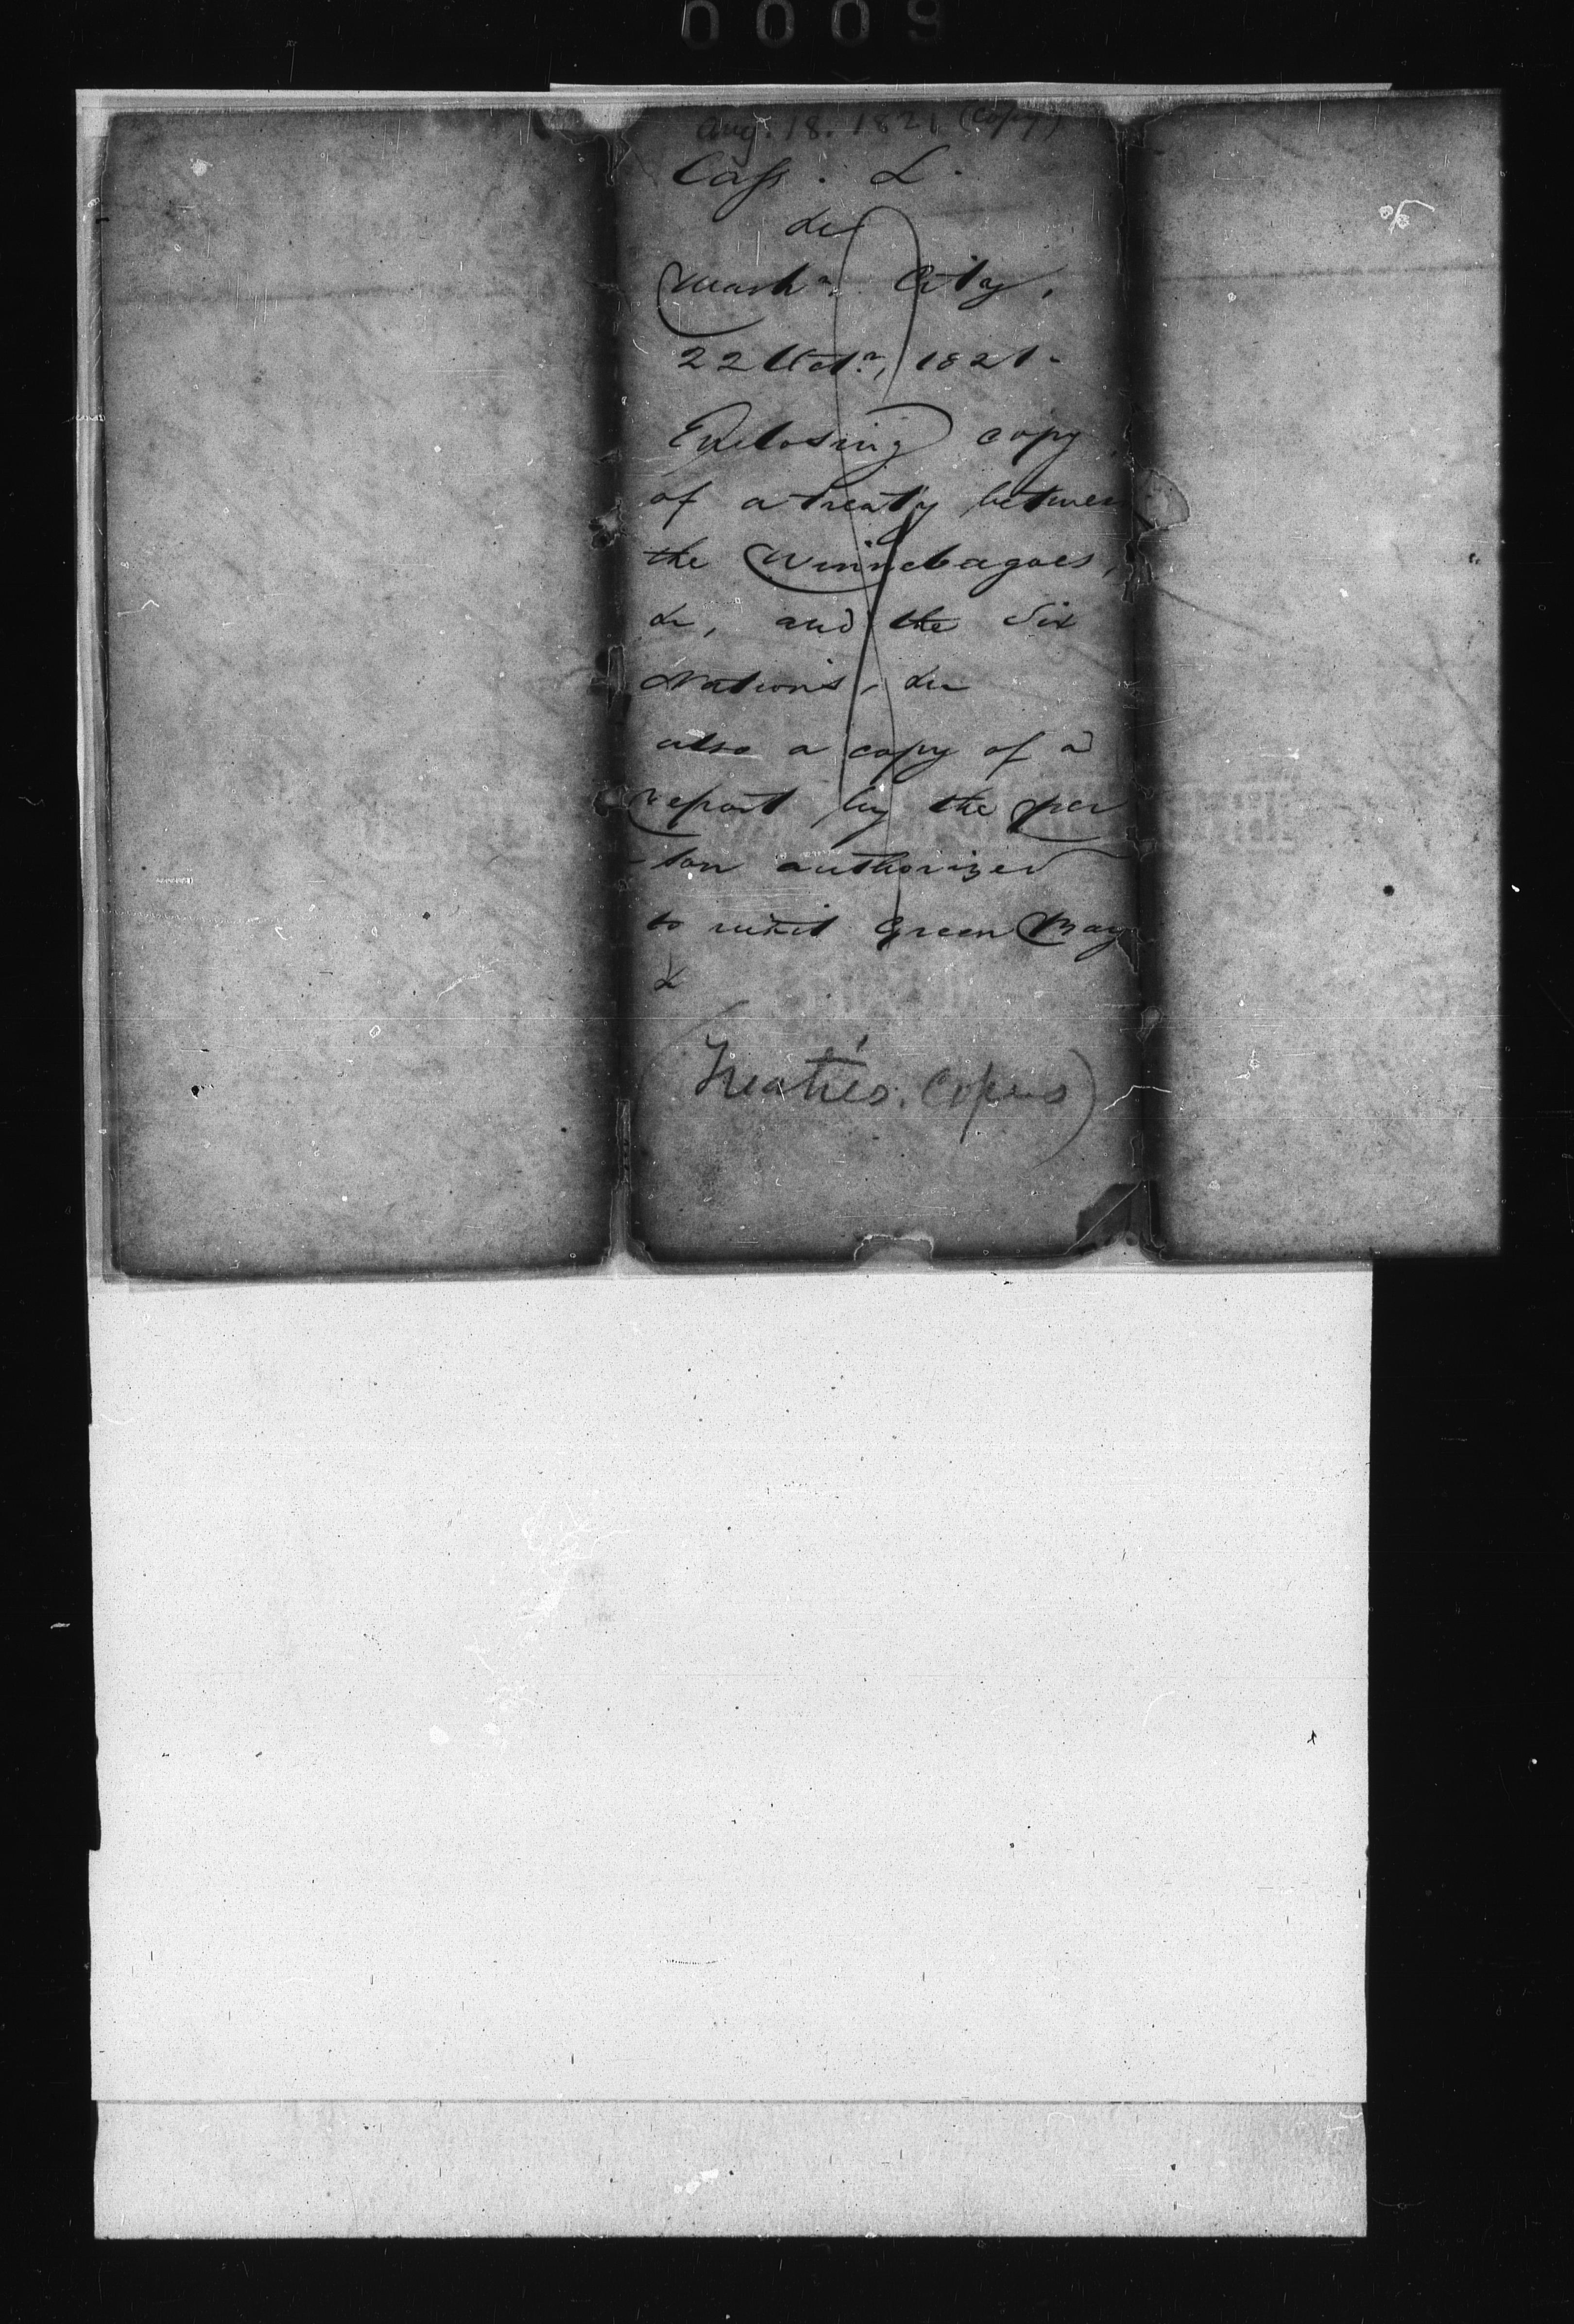 0009
Aug. 18. 1821 (Copy)
Cass. L.
&c
Washn. City,
22 Octr, 1821.
Enclosing copy
of a treaty between
the Winnebagoes,
&c, and the Six
Nations, &c
also a copy of a
report by the per
-son authorized
to visit Green Bay
&
(Treaties. Copies)